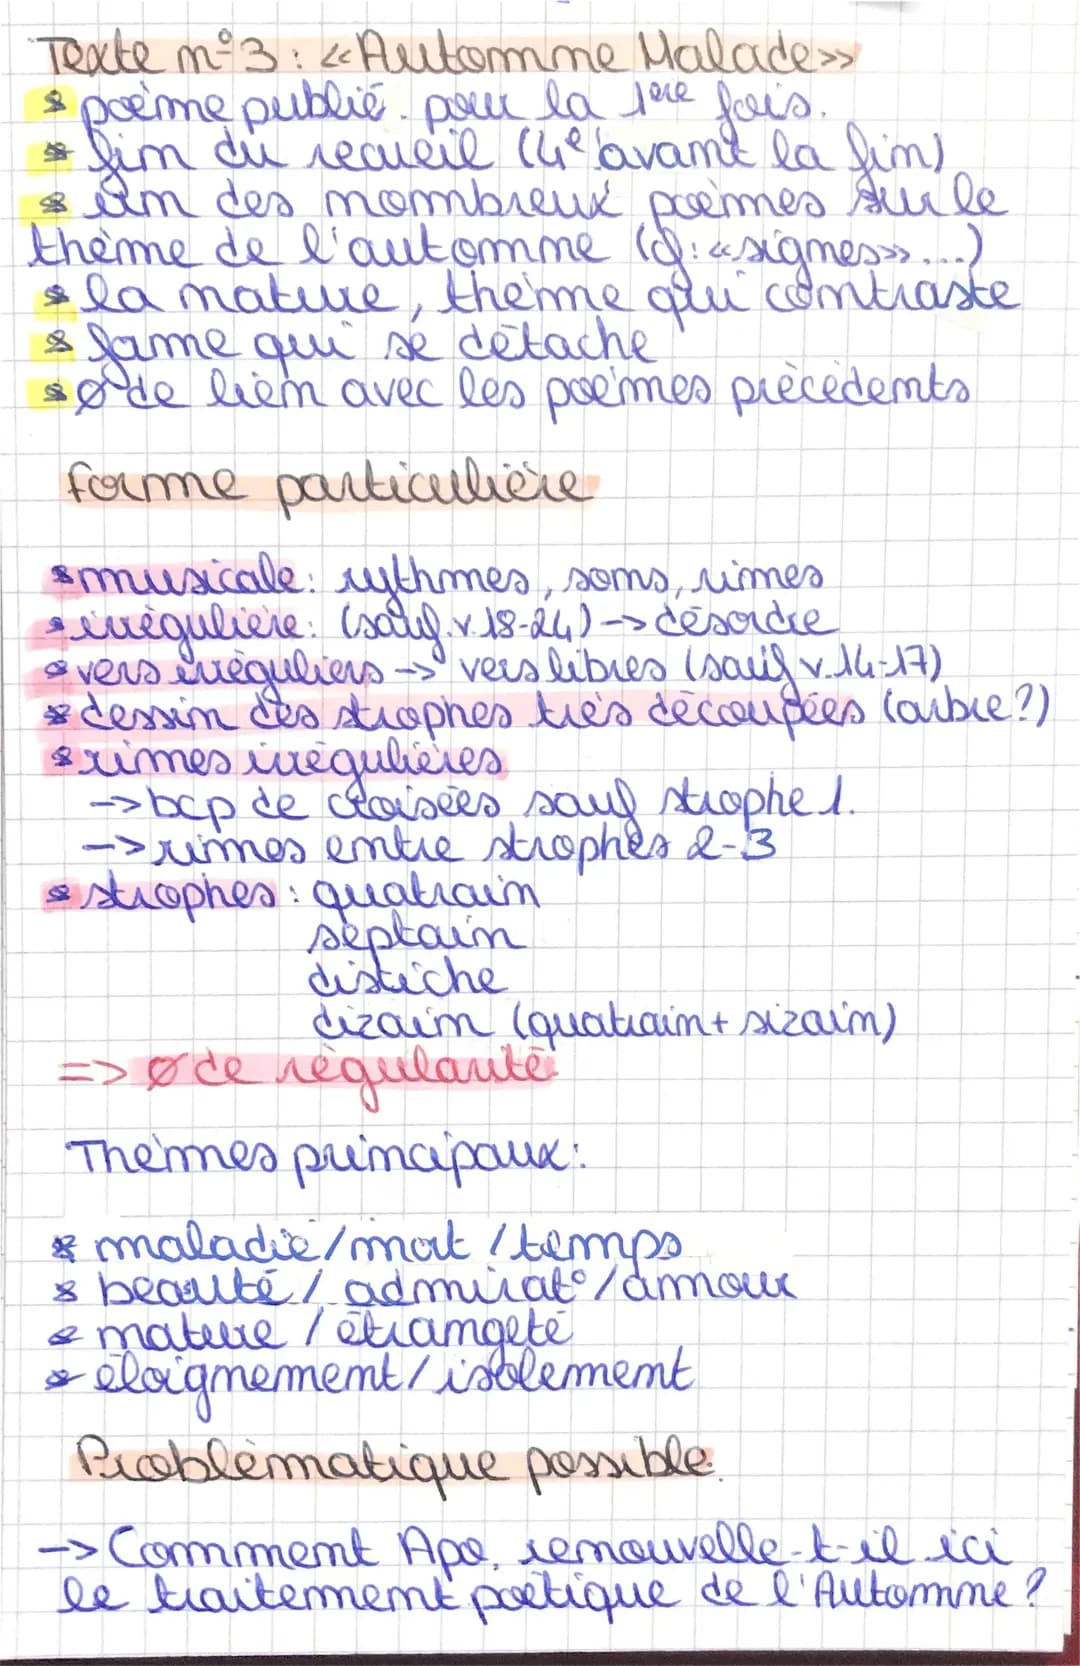 Texte n°3 : «Automne Malade»
* poème publié pour la 1ère fois.
* fin du recueil (4e avant la fin)
* un des nombreux poèmes sur le
thème de l'automne (cf: «signes»...)
* la nature, thème qui contraste
* forme qui se détache
* ø de lien avec les poèmes précédents
forme particulière
* musicale: rythmes, sons, rimes
* irrégulière: (sauf v.18-24) -> désordre
* vers irréguliers -> vers libres (sauf v.14-17)
* dessin des strophes très découpées (arbre?)
* rimes irrégulières
-> bcp de croisées sauf strophe 1.
-> rimes entre strophes 2-3
* strophes : quatrain
septain
distiche
dizain (quatrain + sizain)
=> ø de régularité
Thèmes principaux:
* maladie/mort/temps
* beauté/admirat°/amour
* nature/étrangeté
* éloignement/isolement
Problématique possible:
-> Comment Apo. renouvelle-t-il ici
le traitement poétique de l'Automne ?